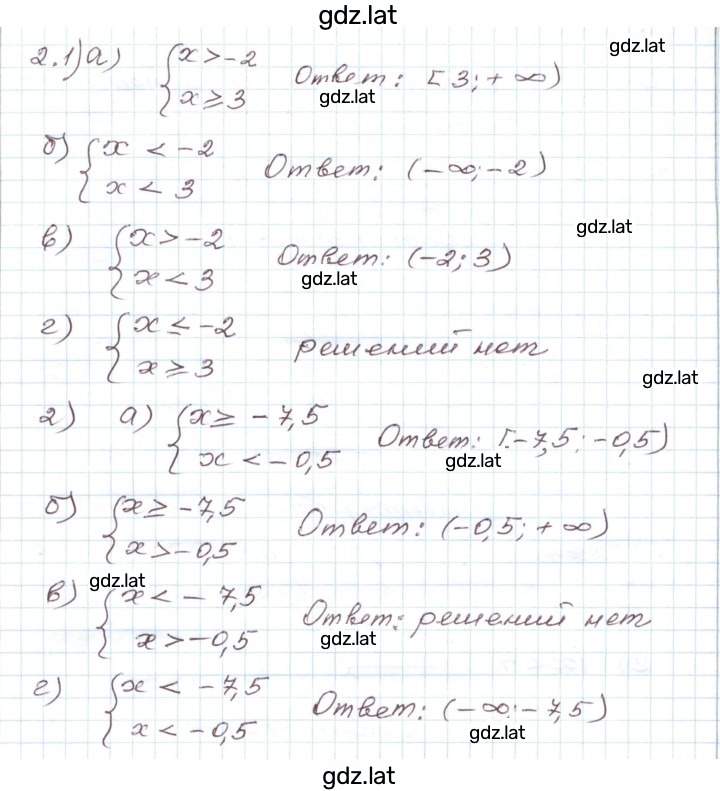 gdz.lat
gdz.lat
2.1) а) { x > -2
x ≥ 3
Ответ: [3; +∞)
gdz.lat
б) { x < -2
x < 3
Ответ: (-∞; -2)
gdz.lat
в) { x > -2
x < 3
Ответ: (-2; 3)
gdz.lat
г) { x ≤ -2
x ≥ 3
решений нет
gdz.lat
2) а) { x ≥ -7,5
x < -0,5
Ответ: [-7,5; -0,5)
gdz.lat
б) { x ≥ -7,5
x > -0,5
Ответ: (-0,5; +∞)
gdz.lat
в) { x < -7,5
x > -0,5
Ответ: решений нет
gdz.lat
г) { x < -7,5
x < -0,5
Ответ: (-∞; -7,5)
gdz.lat
gdz.lat